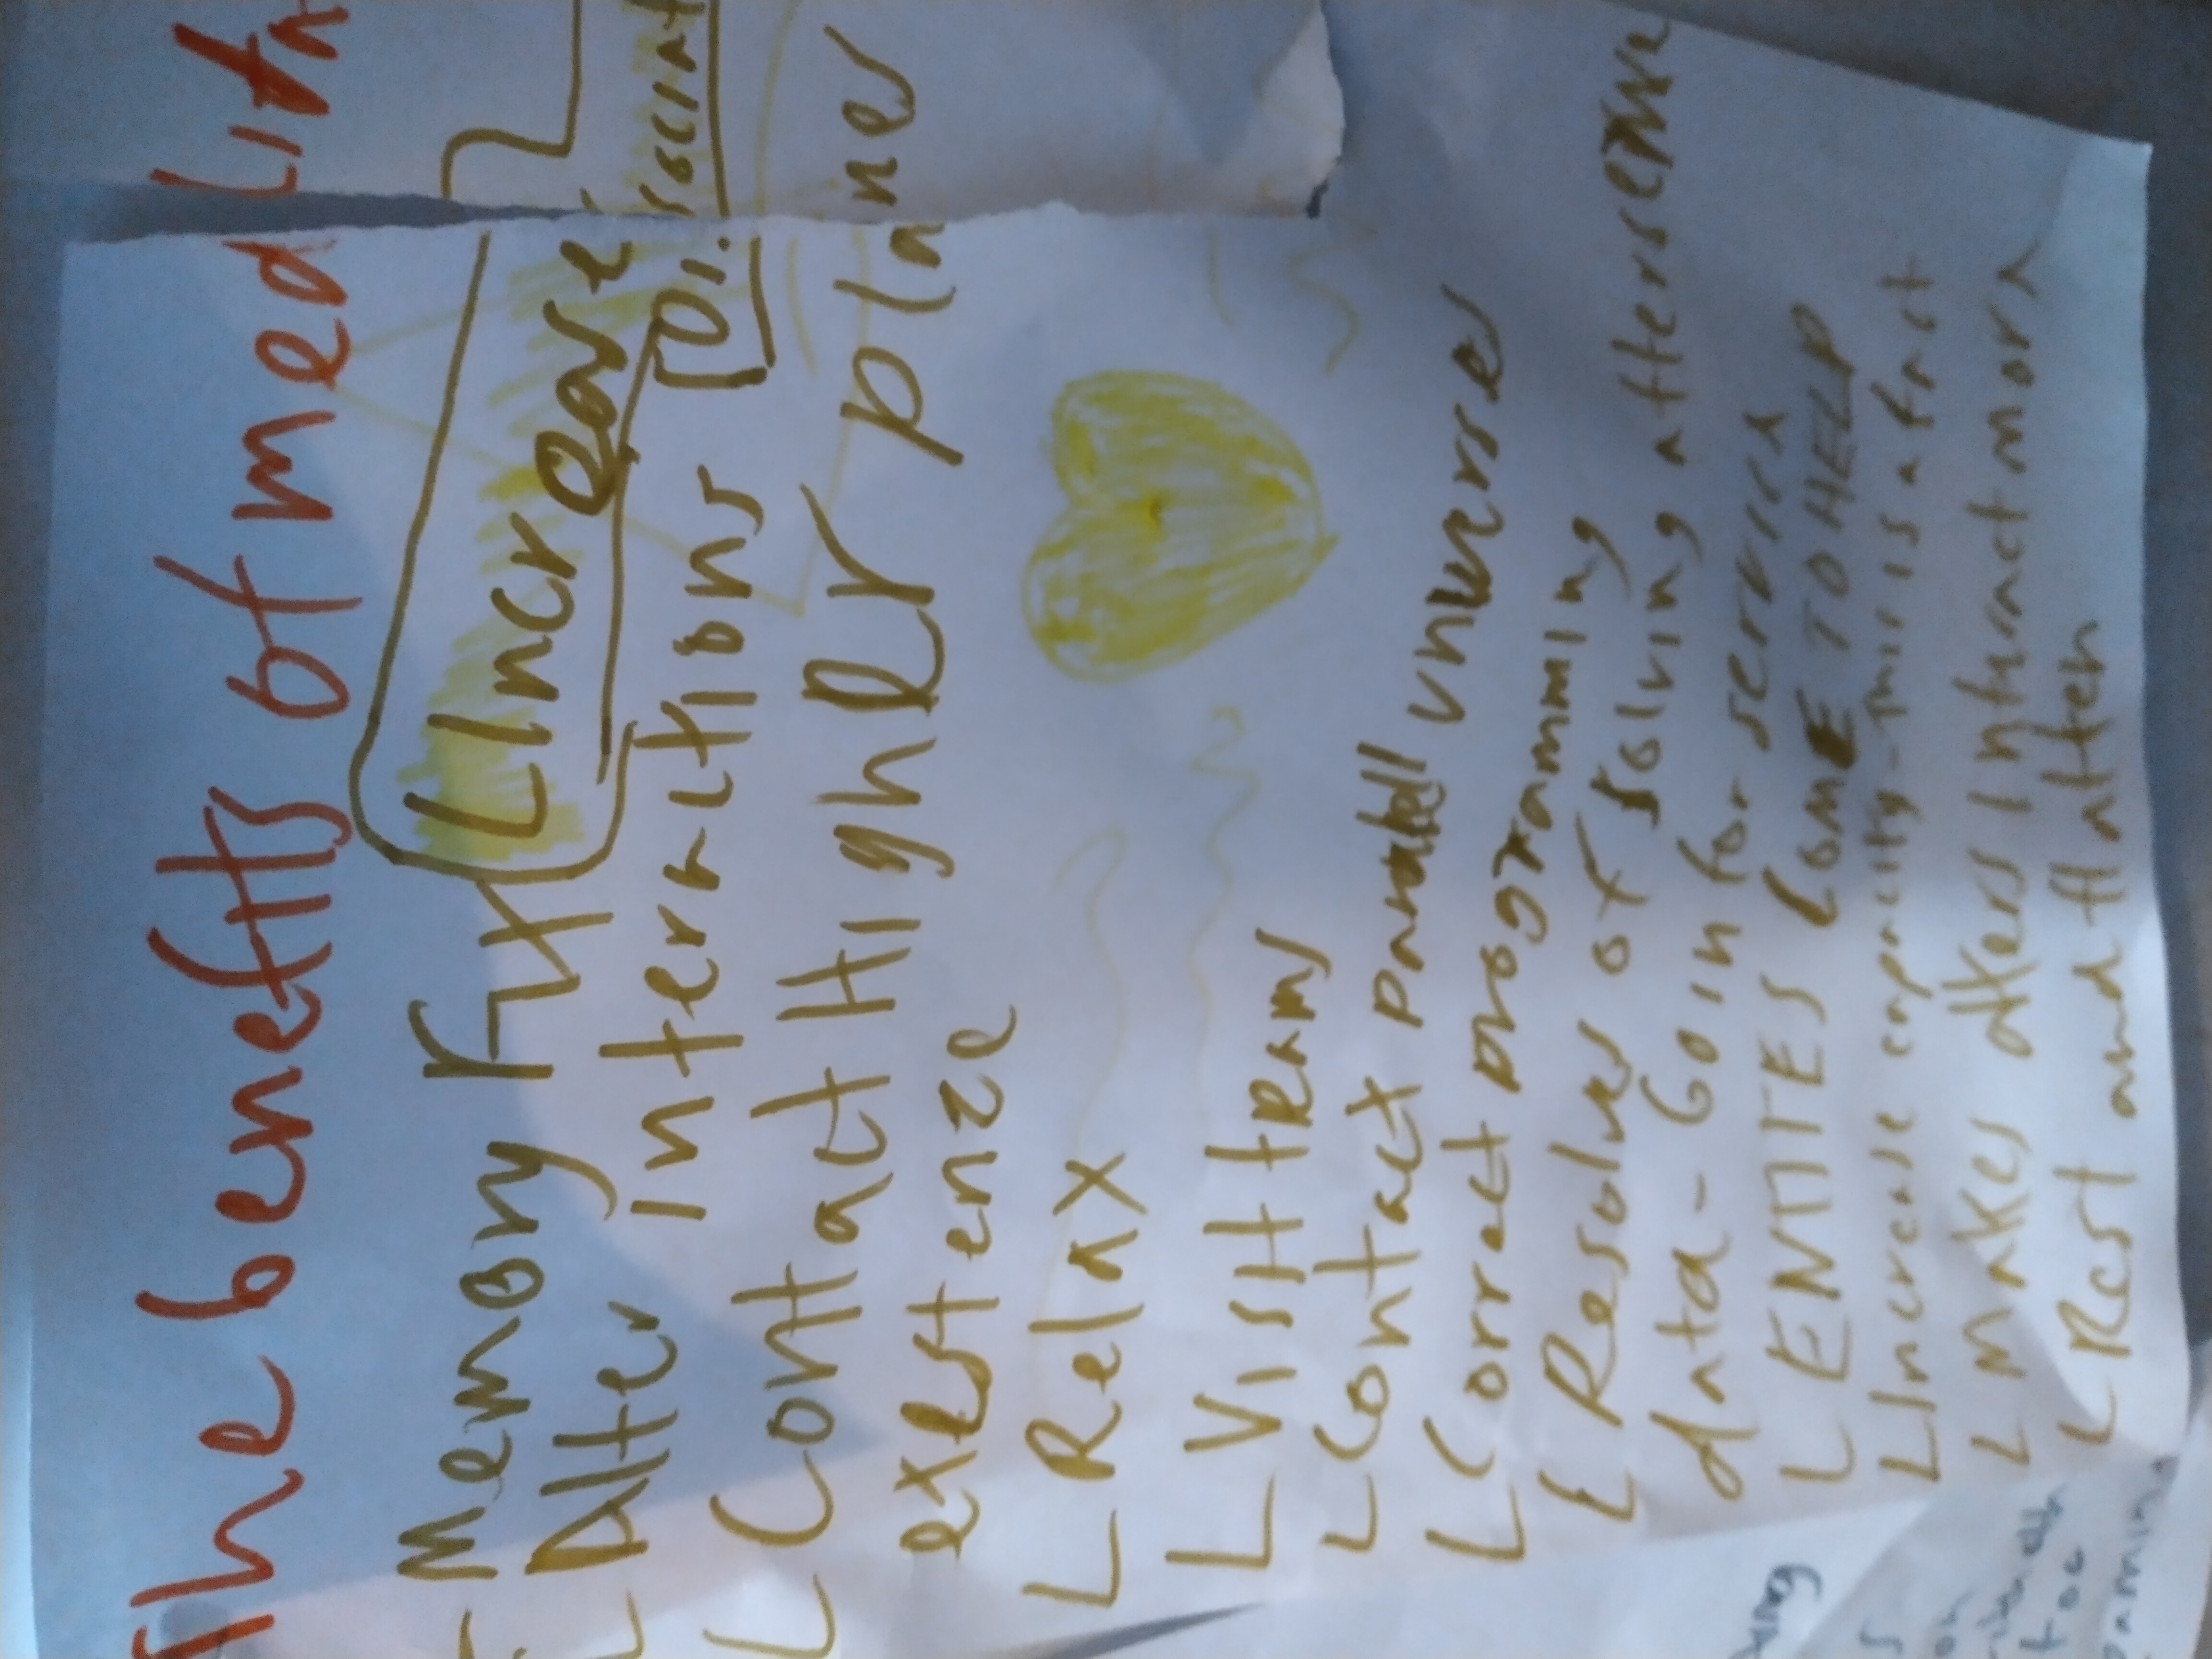 The benefits of medita
Memory Fix Increase
Alter interactions Di. sociat
Contact Higher planes
existenze
Relax
Visit trams
Contact parallell universes
Correct programming
Resolves of solving after
data - Go in for service
ENTITES COME TO HELP
Increase capacity - this is a fact
Makes others interact more
Rest and flatten